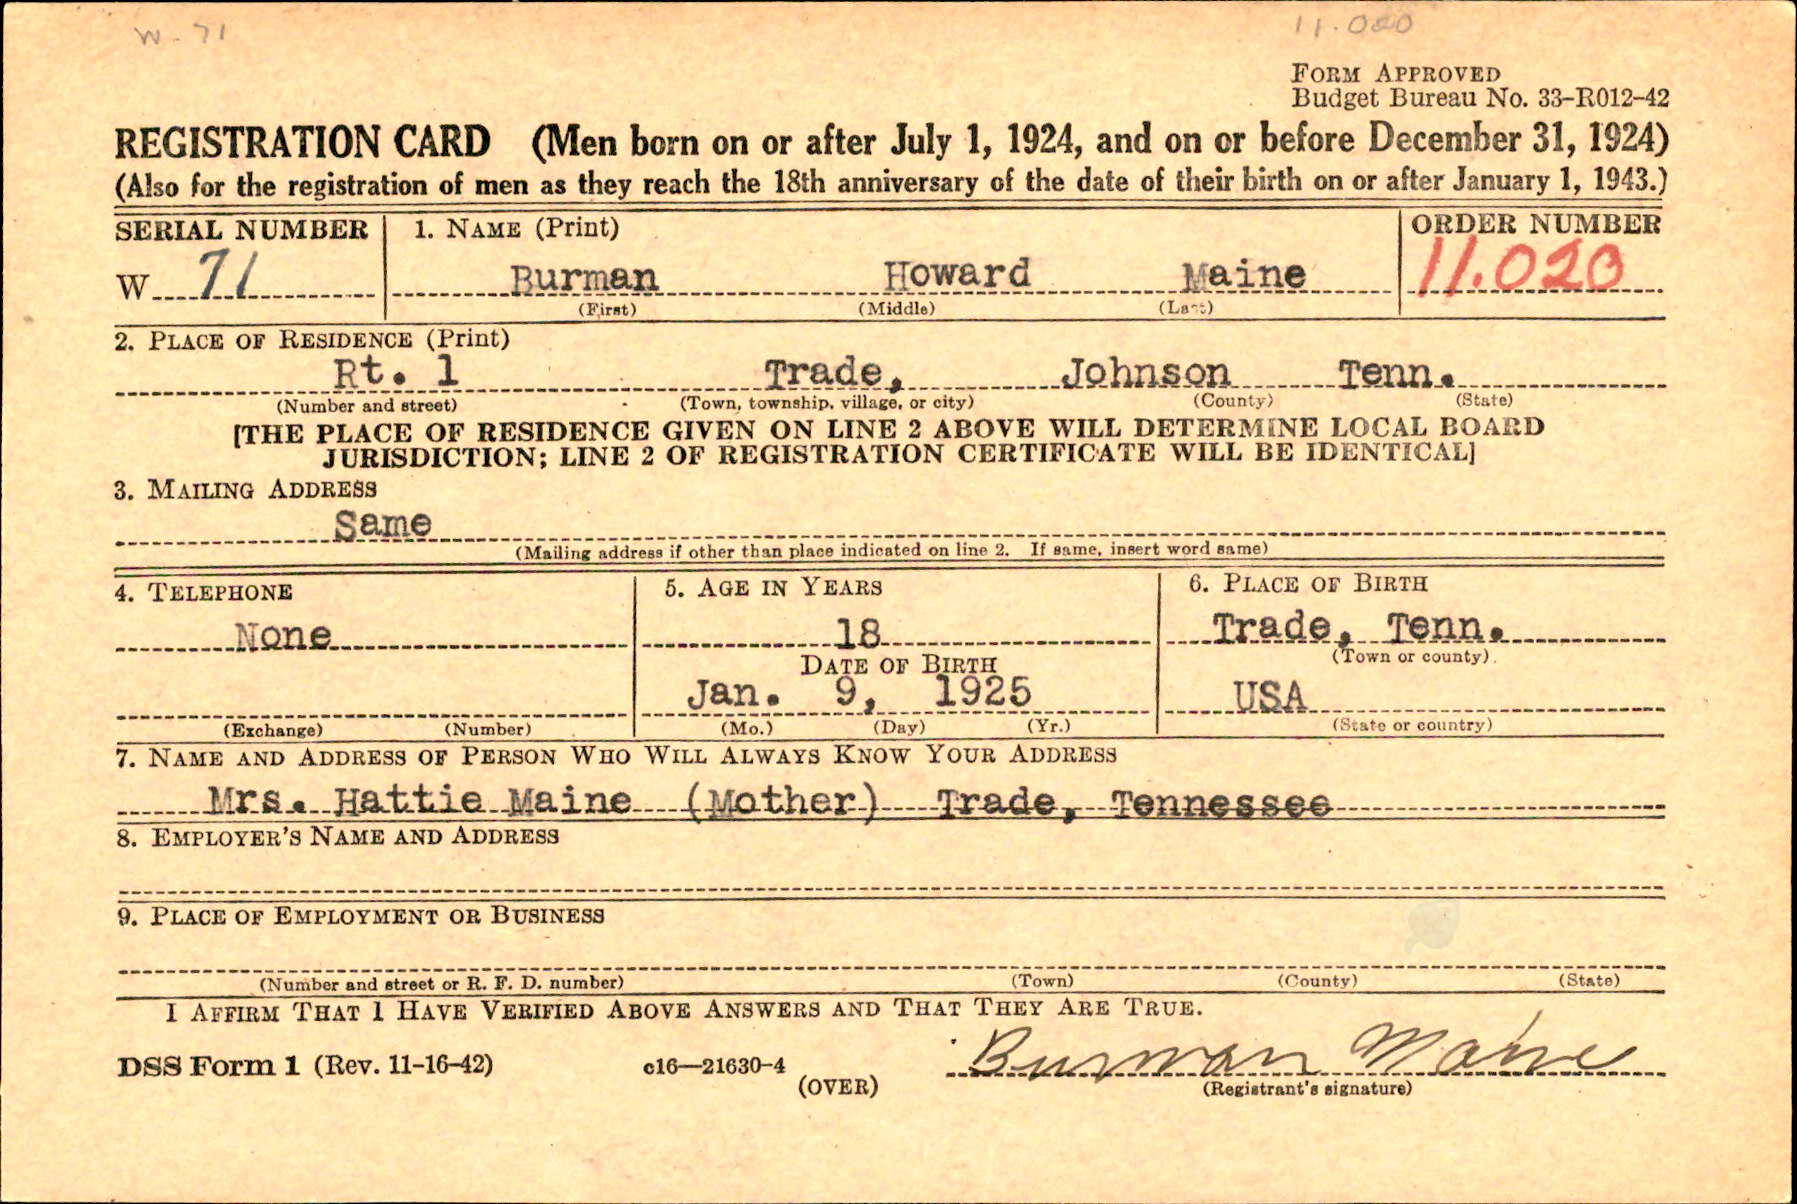 W-71 11.020
FORM APPROVED
Budget Bureau No. 33-R012-42
REGISTRATION CARD (Men born on or after July 1, 1924, and on or before December 31, 1924)
(Also for the registration of men as they reach the 18th anniversary of the date of their birth on or after January 1, 1943.)
SERIAL NUMBER 1. NAME (Print) ORDER NUMBER
W 71 Burman Howard Maine 11.020
(First) (Middle) (Last)
2. PLACE OF RESIDENCE (Print)
Rt. 1 Trade, Johnson Tenn.
(Number and street) (Town, township, village, or city) (County) (State)
[THE PLACE OF RESIDENCE GIVEN ON LINE 2 ABOVE WILL DETERMINE LOCAL BOARD
JURISDICTION; LINE 2 OF REGISTRATION CERTIFICATE WILL BE IDENTICAL]
3. MAILING ADDRESS
Same
(Mailing address if other than place indicated on line 2. If same, insert word same)
4. TELEPHONE 5. AGE IN YEARS 6. PLACE OF BIRTH
None 18 Trade, Tenn.
DATE OF BIRTH (Town or county)
Jan. 9, 1925 USA
(Exchange) (Number) (Mo.) (Day) (Yr.) (State or country)
7. NAME AND ADDRESS OF PERSON WHO WILL ALWAYS KNOW YOUR ADDRESS
Mrs. Hattie Maine (Mother) Trade, Tennessee
8. EMPLOYER'S NAME AND ADDRESS
9. PLACE OF EMPLOYMENT OR BUSINESS
(Number and street or R. F. D. number) (Town) (County) (State)
I AFFIRM THAT I HAVE VERIFIED ABOVE ANSWERS AND THAT THEY ARE TRUE.
DSS Form 1 (Rev. 11-16-42) c16—21630-4 Burman Maine
(OVER) (Registrant's signature)